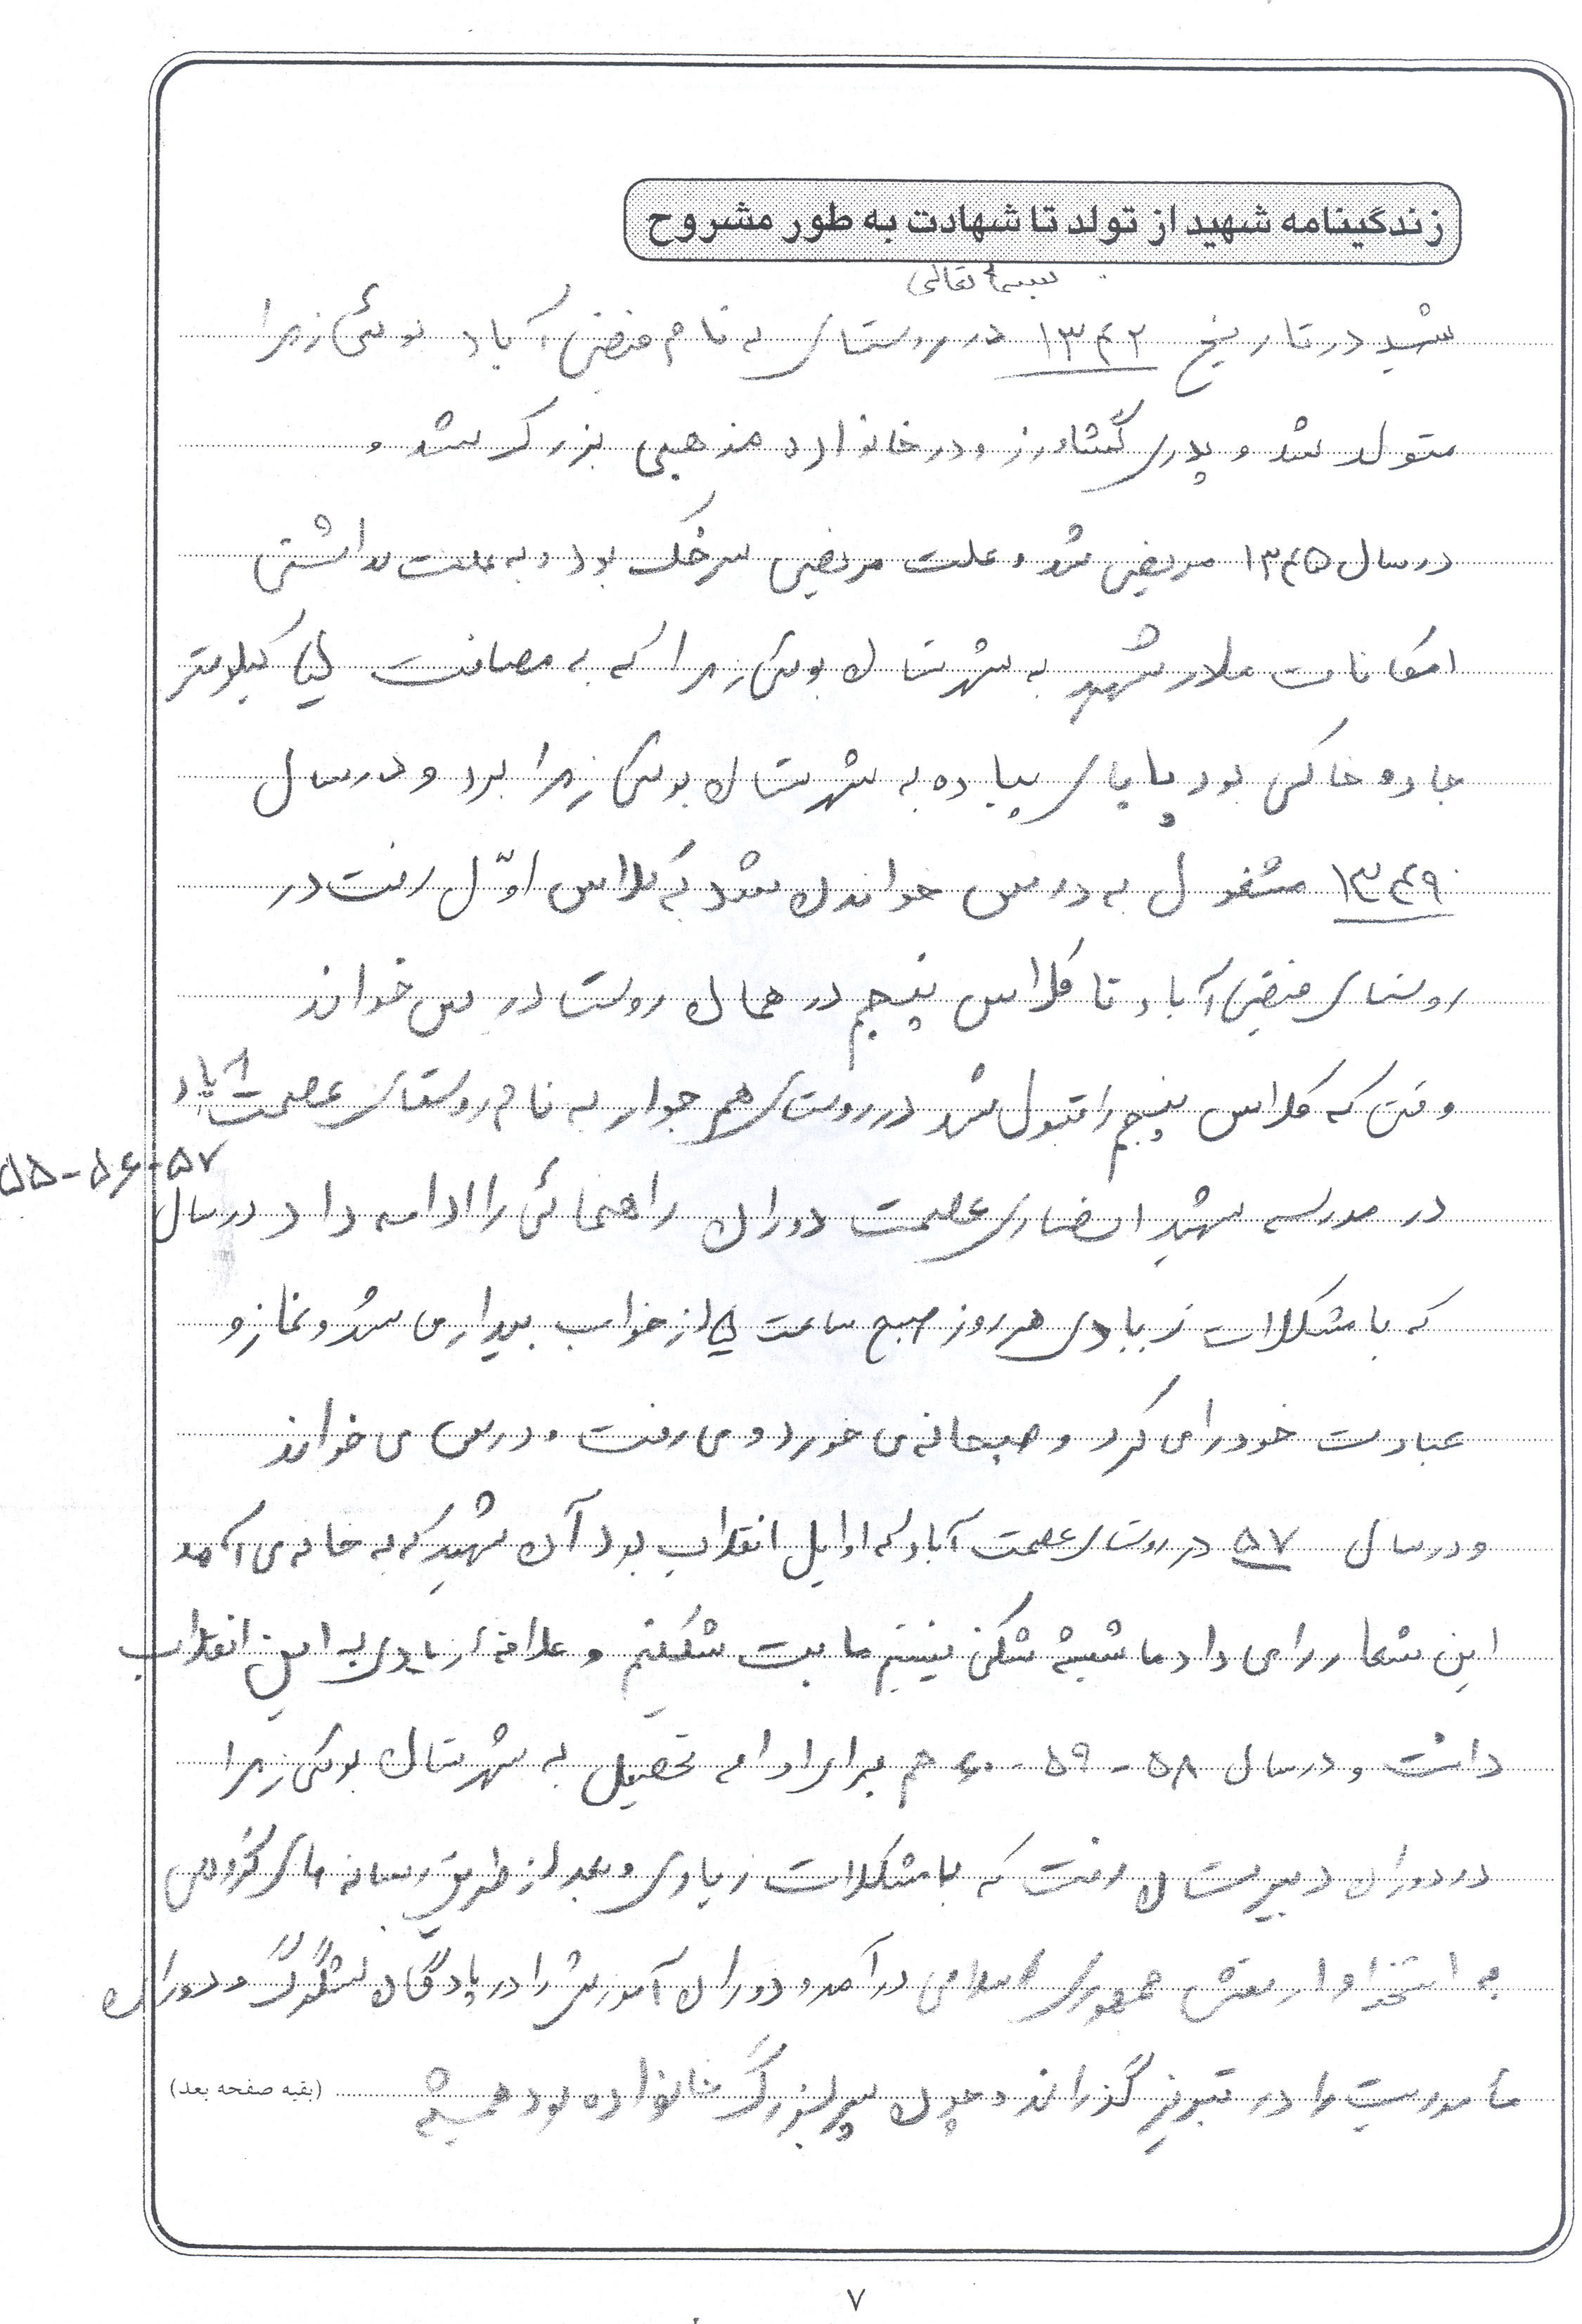 زندگینامه شهید از تولد تا شهادت به طور مشروح
بسمه تعالی
شهید در تاریخ ۱۳۴۲ در روستای به نام فیض آباد بوئین زهرا
متولد شد و پدری کشاورز و در خانواده مذهبی بزرگ شد و
در سال ۱۳۴۵ مریض شد و علت مریضی سرخک بود و به علت نداشتن
امکانات مادر شهید به شهرستان بوئین زهرا که به مصافت کیلومتر
جاده خاکی بود با پای پیاده به شهرستان بوئین زهرا برد و در سال
۱۳۴۹ مشغول به درس خواندن شد به کلاس اوّل رفت در
روستای فیض آباد تا کلاس پنجم در همان روستا درس خواند
وقتی که کلاس پنجم را قبول شد در روستای هم جوار به نام روستای عصمت آباد
در مدرسه شهید انصاری عصمت دوران راهنمائی را ادامه داد در سال ۵۷-۵۶-۵۵
که با مشکلات زیادی هر روز صبح ساعت ۵ از خواب بیدار می شد و نماز و
عبادت خود را می کرد و صبحانه می خورد و می رفت و درس می خواند
و در سال ۵۷ در روستای عصمت آباد که اوایل انقلاب بود آن شهید که به خانه می آمد
این شعار را می داد ما شیشه شکن نیستیم ما بت شکنیم و علاقه زیادی به این انقلاب
داشت و در سال ۵۸-۵۹-۶۰ هم برای ادامه تحصیل به شهرستان بوئین زهرا
در دوران دبیرستان رفت که با مشکلات زیادی و بعد از طریق رسانه های گروهی
به استخدام ارتش جمهوری اسلامی درآمد و دوران آموزش را در پادگان لشگرگ و دوران
مأموریت را در تبریز گذراند و چون پسر بزرگ خانواده بود همیشه
(بقیه صفحه بعد)
۷